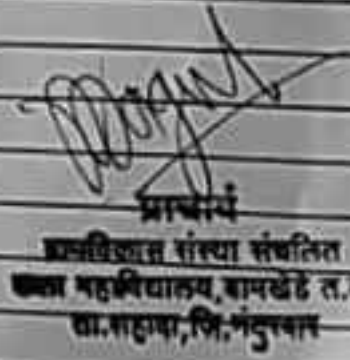 प्राचार्य
ग्रामविकास संस्था संचलित
कला महाविद्यालय,बामखेडे त.
ता.शहादा,जि.नंदुरबार